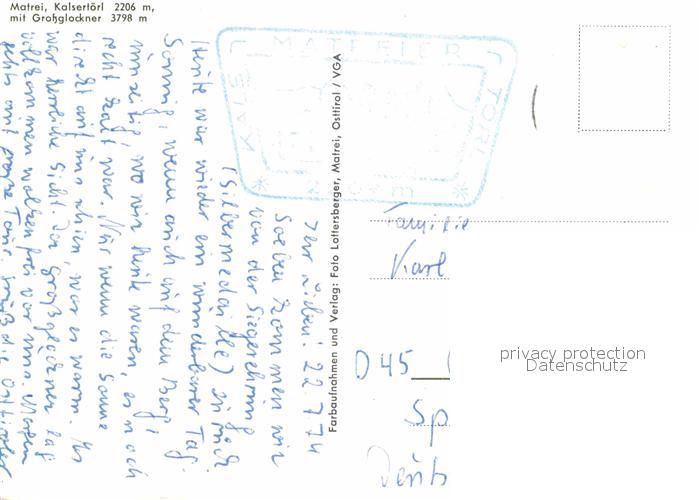 Matrei, Kalsertörl 2206 m,
mit Großglockner 3798 m
MATREIER
KALS
TÖRL
* 2207 m *
Farbaufnahmen und Verlag: Foto Lottersberger, Matrei, Osttirol / VGA
Ihr Lieben! 22.7.74
Soeben kommen wir
von der Siegerehrung
(Silbermedaille) zurück
Heute war wieder ein wunderbarer Tag.
Sonnig, wenn auch auf dem Berg,
wo wir heute waren, es noch
recht kalt war. Nur wenn die Sonne
direkt auf uns schien, war es warm. Es
war herrliche Sicht. Der Großglockner lag
vollkommen wolkenfrei vor uns. Morgen
große Tour
Familie
Karl
D 45
Sp
privacy protection
Datenschutz